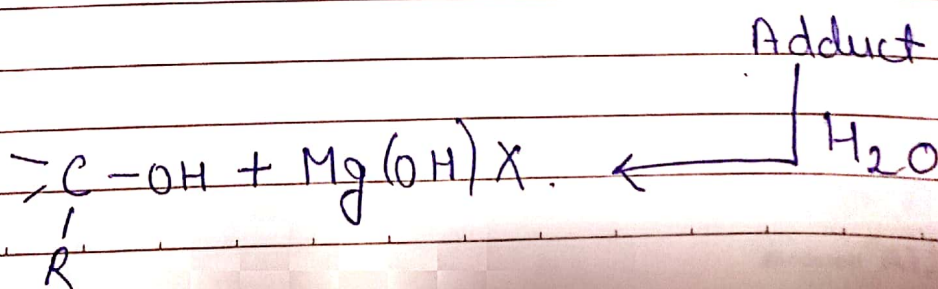 Adduct
H₂O
>C-OH + Mg(OH)X.
R